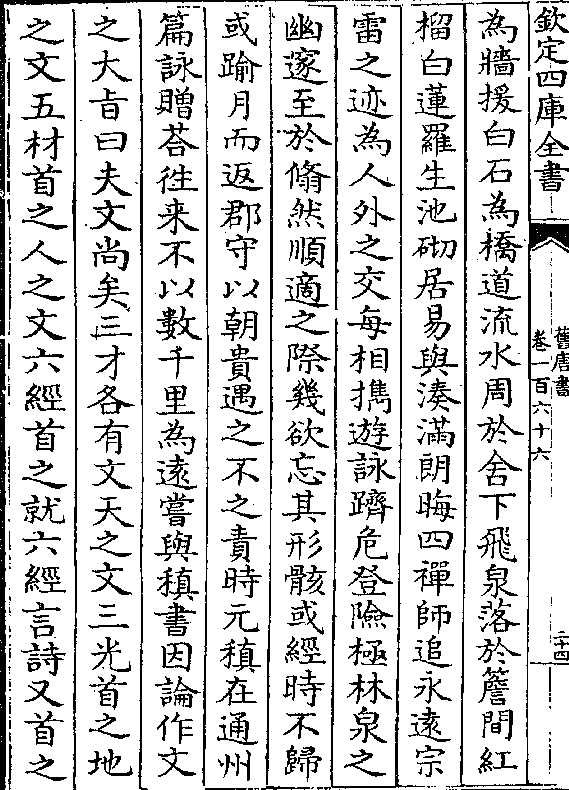 欽定四庫全書
舊唐書
卷一百六十六
二十四
為牆援白石為橋道流水周於舍下飛泉落於簷間紅
榴白蓮羅生池砌居易與湊滿朗晦四禪師追永遠宗
雷之迹為人外之交每相攜遊詠躋危登險極林泉之
幽邃至於翛然順適之際幾欲忘其形骸或經時不歸
或踰月而返郡守以朝貴遇之不之責時元稹在通州
篇詠贈荅徃来不以數千里為遠嘗與稹書因論作文
之大㫖曰夫文尚矣三才各有文天之文三光首之地
之文五材首之人之文六經首之就六經言詩又首之